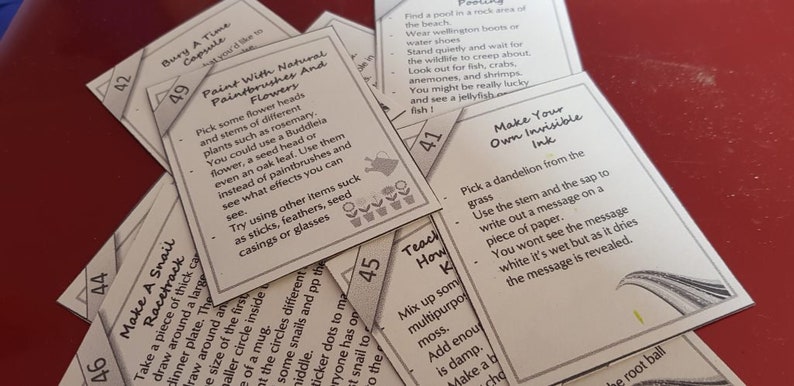 42
Bury A Time
Capsule
you'd like to
49
Paint With Natural
Paintbrushes And
Flowers
- Pick some flower heads
and stems of different
plants such as rosemary.
- You could use a Buddleia
flower, a seed head or
even an oak leaf. Use them
instead of paintbrushes and
see what effects you can
see.
- Try using other items suck
as sticks, feathers, seed
casings or glasses
Pooling
- Find a pool in a rock area of
the beach.
- Wear wellington boots or
water shoes
- Stand quietly and wait for
the wildlife to creep about.
- Look out for fish, crabs,
anemones, and shrimps.
- You might be really lucky
and see a jellyfish or
fish !
41
Make Your
Own Invisible
Ink
- Pick a dandelion from the
grass
- Use the stem and the sap to
write out a message on a
piece of paper.
- You wont see the message
white it's wet but as it dries
the message is revealed.
44
46
Make A Snail
Racetrack
Take a piece of thick
draw around a large
dinner plate. The
draw around
size of the first
smaller circle inside
of a mug.
the circles different
some snails and pp the
middle.
sticker dots to
everyone has
snail to
to the
45
Teach
How
- Mix up some
multipurpose
moss.
- Add enough
is damp.
- Make a
the root ball